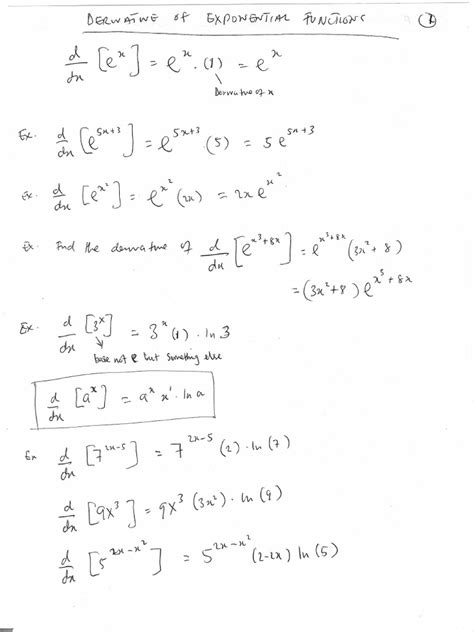 DERIVATIVE OF EXPONENTIAL FUNCTIONS 1
d/dx [e^x] = e^x · (1) = e^x
Derivative of x
Ex. d/dx [e^(5x+3)] = e^(5x+3) · (5) = 5e^(5x+3)
Ex. d/dx [e^(x^2)] = e^(x^2) (2x) = 2x e^(x^2)
Ex. Find the derivative of d/dx [e^(x^3+8x)] = e^(x^3+8x) (3x^2+8)
= (3x^2+8) e^(x^3+8x)
Ex. d/dx [3^x] = 3^x (1) · ln 3
base not e but something else
d/dx [a^x] = a^x x' · ln a
Ex d/dx [7^(2x-5)] = 7^(2x-5) (2) · ln (7)
d/dx [9x^3] = 9x^3 (3x^2) · ln (9)
d/dx [5^(2x-x^2)] = 5^(2x-x^2) (2-2x) ln (5)